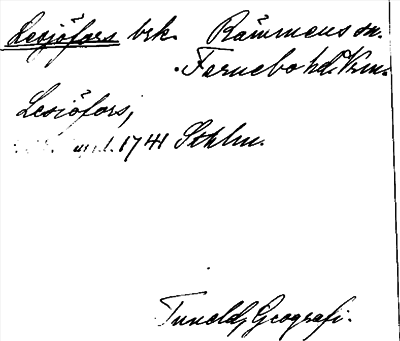 Lesjöfors brk. Rämmens sn.
Fernebo hd. Vrm.
Lesiöfors,
1741 Sthlm.
Tuneld, Geografi.